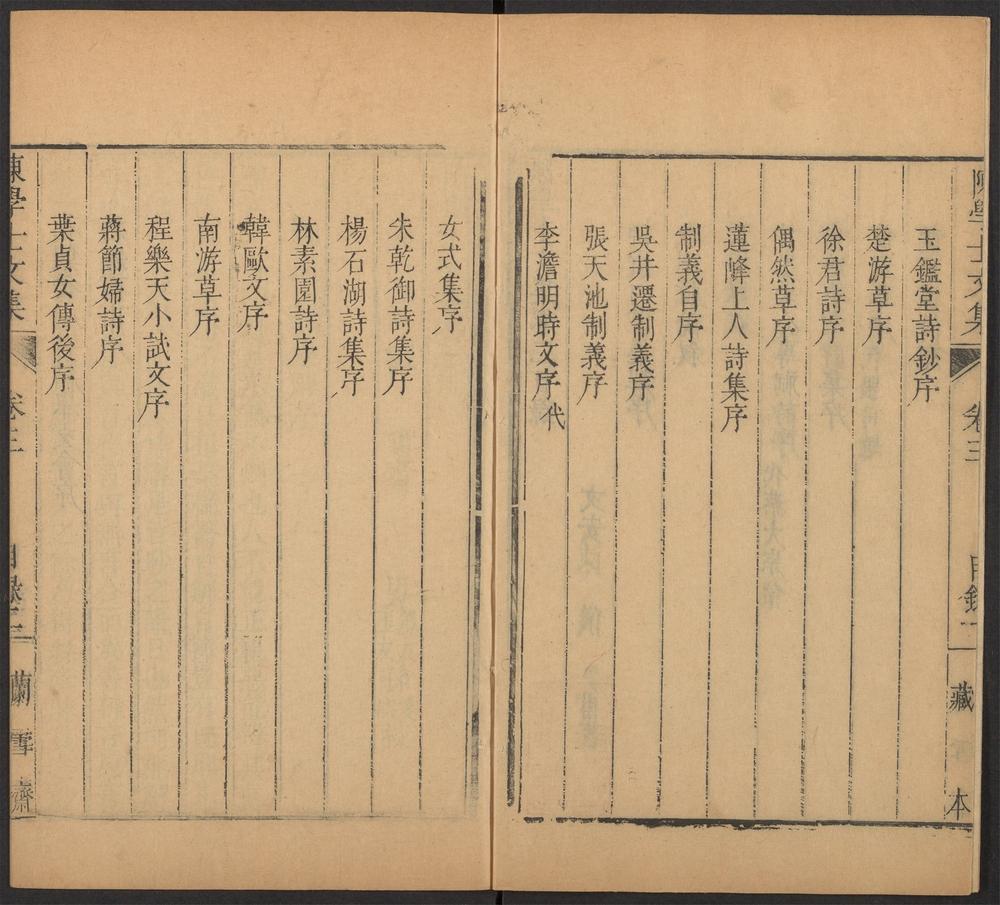 學士文集 卷三 目錄 藏 本
玉鑑堂詩鈔序
楚游草序
徐君詩序
偶然草序
蓮峰上人詩集序
制義自序
吳井遷制義序
張天池制義序
李澹明時文序代
女式集序
朱乾御詩集序
楊石湖詩集序
林素園詩序
韓歐文序
南游草序
程樂天小試文序
蔣節婦詩序
葉貞女傳後序
陳學士文集 卷三 目錄 蘭雪齋